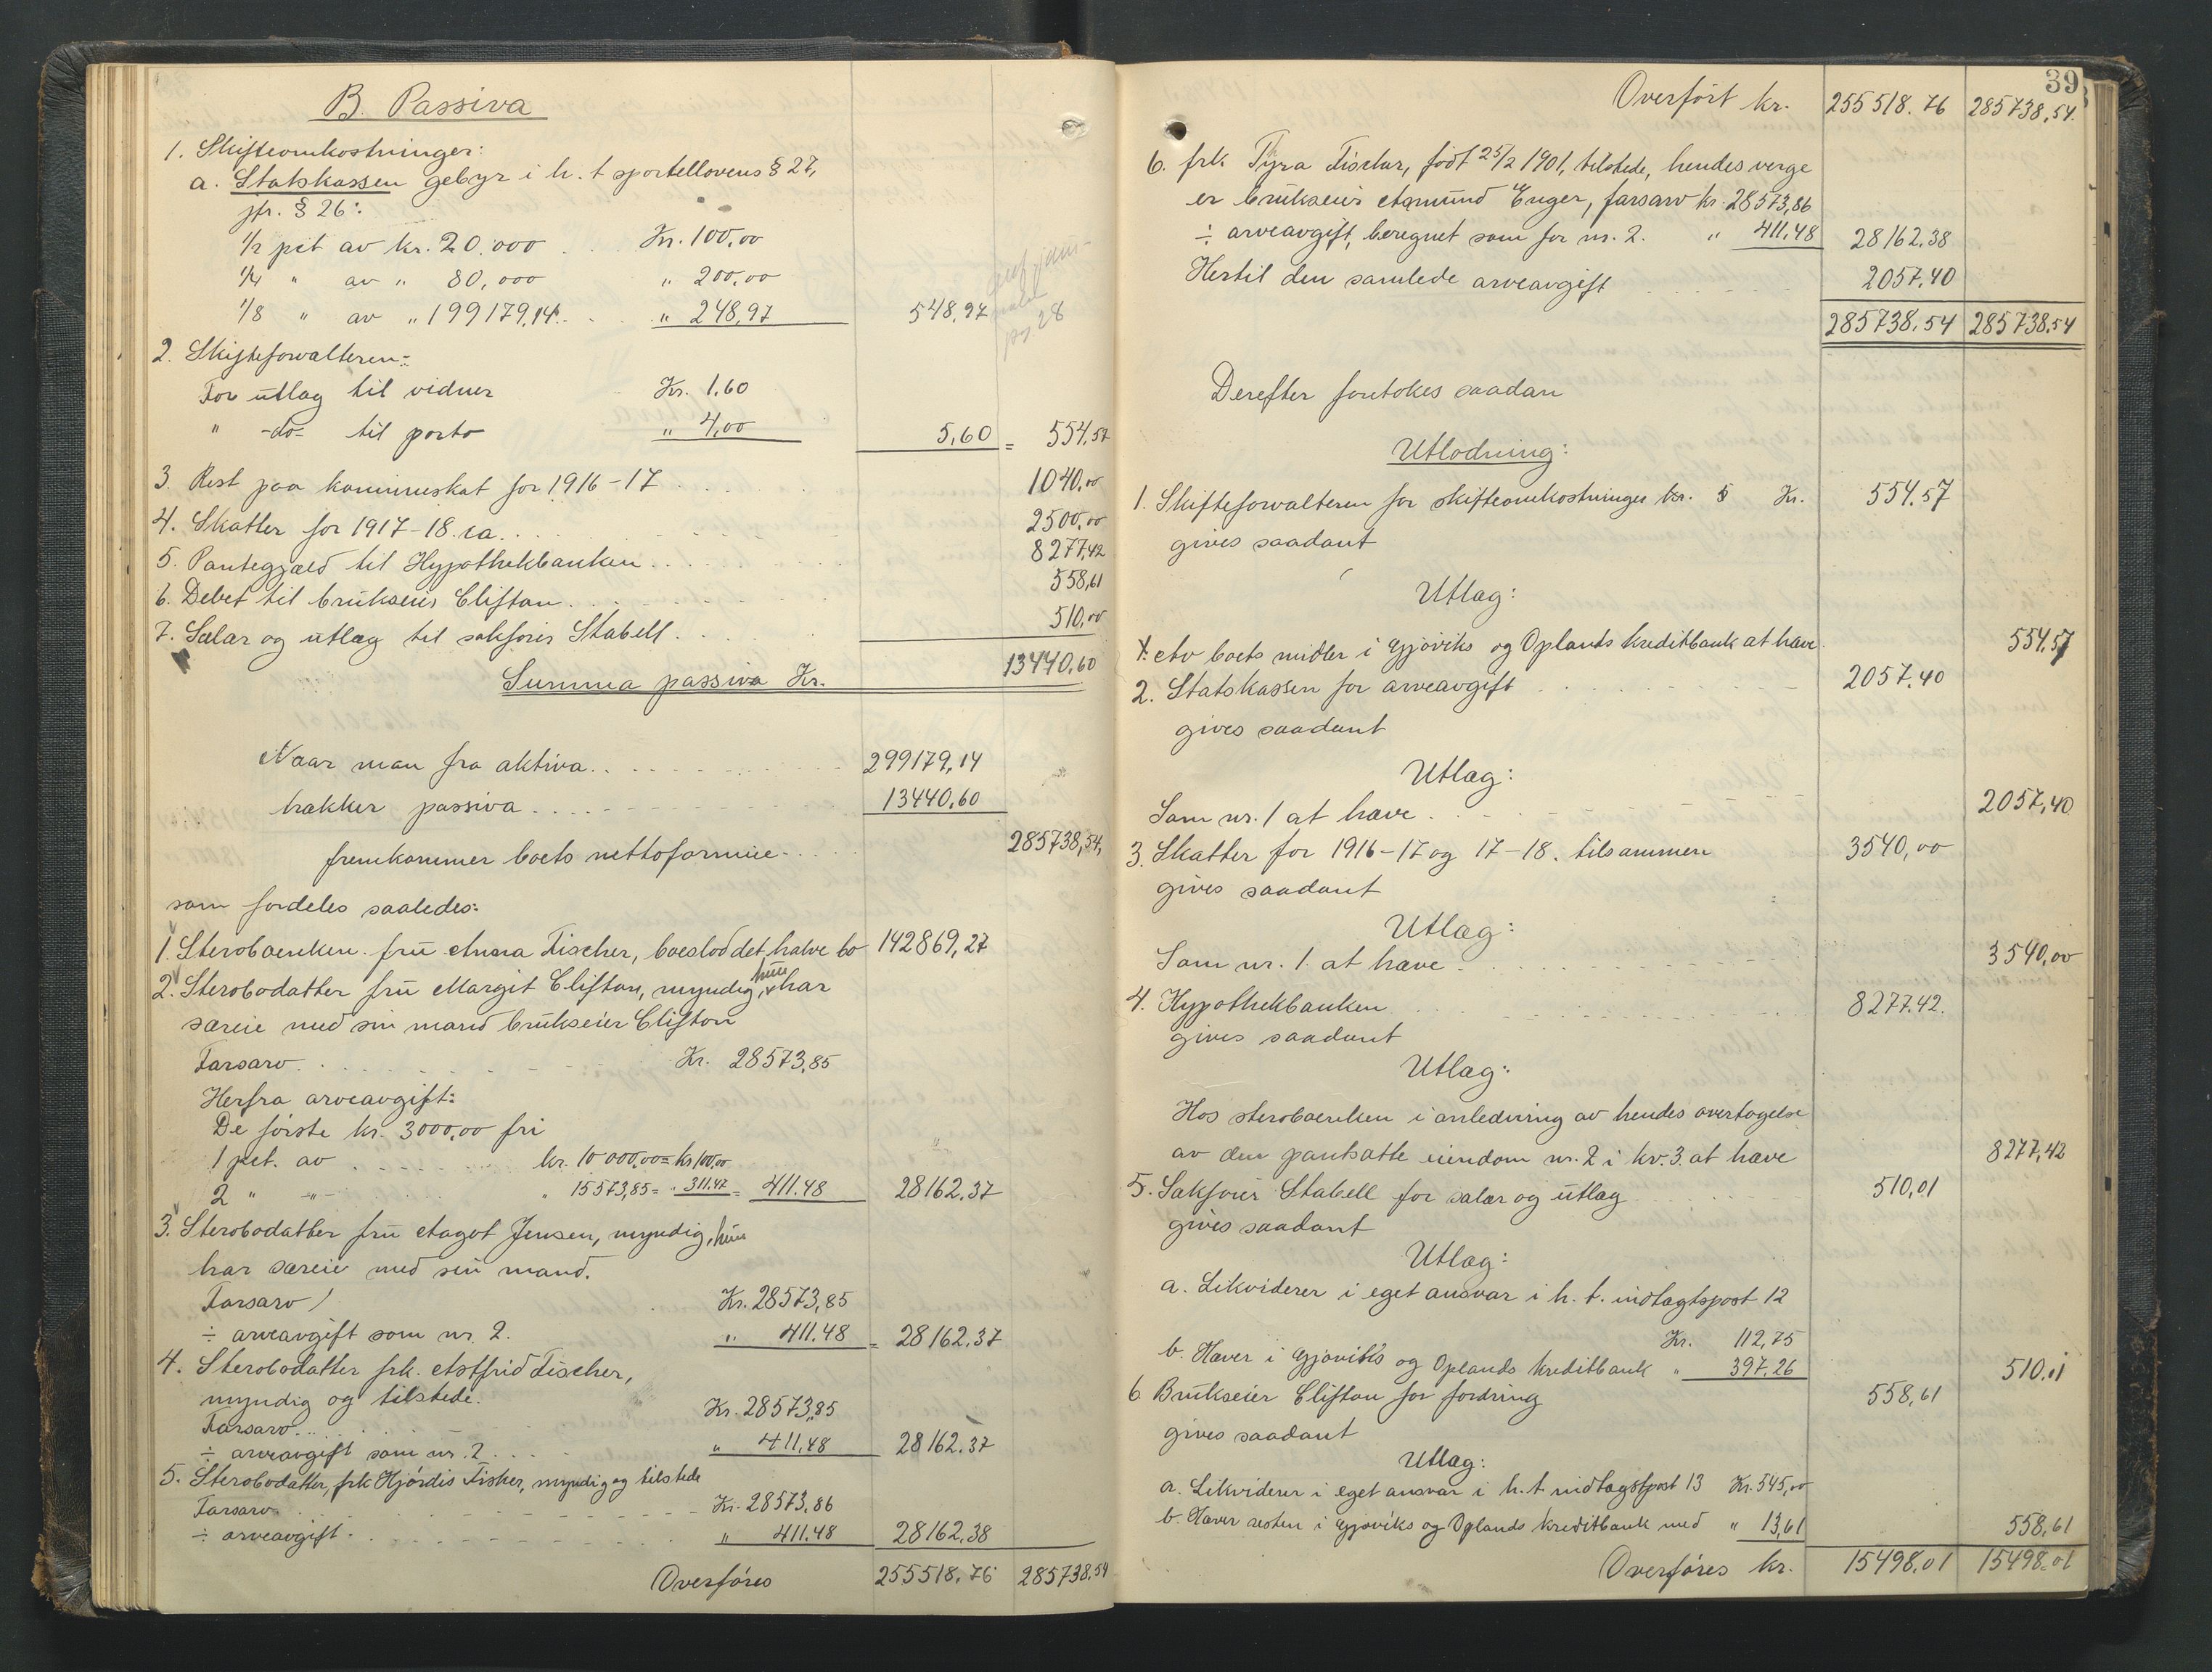 B. Passiva
1. Skifteomkostninger:
a. Statskassen gebyr i h. t sportellovens § 27,
jfr. § 26:
1/2 pct av kr. 20.000 . . Kr. 100,00
1/4 " av " 80,000 " 200,00
1/8 " av " 199179,14 . . " 248,97 548,97
2. Skifteforvalteren:
For utlag til vidner Kr. 1,60
" -do- til porto " 4,00 5,60 = 554,57
3. Rest paa kommuneskat for 1916-17 . . . . 1040,00
4. Skatter for 1917-18. ca. . . 2500,00
5. Pantegjæld til Hypothekbanken . . . . 8277,42
6. Debet til brukseier Clifton . . . . 558,61
7. Salær og utlæg til sakfører Stabell . . . . 510,00
Summa passiva Kr. 13440.60
Naar man fra aktiva . . . . 299179,14
trækker passiva . . . . 13440.60
fremkommer boets nettoformue . . . . 285738,54,
som fordeles saaledes:
1. Sterboenken. fru Anna Fischer, boeslod det halve bo 142869,27
2. Sterbodatter fru Margit Clifton, myndig, hun har
særeie med sin mand brukseier Clifton
Farsarv . . . . Kr. 28573,85
Herfra arveavgift:
De første kr. 3000,00 fri
1 pct. av . . . . kr. 10 000,00 = kr 100,00
2 " -"- " 15573,85 = " 311.47 = 411.48 28162.37
3. Sterbodatter fru Aagot Jensen, myndig, hun
har særeie med sin mand.
Farsarv Kr. 28573,85
÷ arveavgift som nr. 2. " 411.48 = 28162.37
4. Sterbodatter frk. Astfrid Fischer,
myndig og tilstede.
Farsarv . . . Kr. 28573,85
÷ arveavgift som nr. 2 . . . " 411.48 28162.37
5. Sterbodatter, frk Hjørdis Fisher, myndig og tilstede
Farsarv . . . . Kr. 28573,86
÷ arveavgift . . . . " 411.48 28162.38
Overføres 255518.76 285738.54
39
Overført kr. 255518.76 285738,54.
6. frk Tyra Fischer, født 25/2 1901, tilstede, hendes verge
er brukseier Amund Enger, farsarv kr. 28573,86
÷ arveavgift, beregnet som for nr. 2. " 411.48 28162.38
Hertil den samlede arveavgift . . . . 2057.40
285738.54 285738.54
Derefter foretokes saadan
Utlodning:
1. Skifteforvalteren for skifteomkostninger kr. Kr. 554.57
gives saadant
Utlæg:
Av boets midler i Gjøviks og Oplands kreditbank at hæve 554.57
2. Statskassen for arveavgift . . . . 2057.40
gives saadant
Utlæg:
Som nr. 1 at hæve . . . . 2057,40
3. Skatter for 1916-17 og 17-18. tilsammen 3540,00
gives saadant
Utlæg:
Som nr. 1. at hæve . . . . 3540,00
4. Hypothekbanken . . . . 8277.42.
gives saadant
Utlæg:
Hos sterboenken i anledning av hendes overtagelse
av den pantsatte eiendom nr. 2 i kv. 3. at hæve 8277,42
5. Sakfører Stabell for salær og utlæg . . . 510,01
gives saadant
Utlæg:
a. Likviderer i eget ansvar i h. t. indtægtspost 12
Kr. 112,75
b. Hæver i Gjøviks og Oplands kreditbank " 397.26 510.01
6 Brukseier Clifton for fordring 558,61
gives saadant
Utlæg:
a. Likviderer i eget ansvar i h. t indtægtspost 13 Kr. 545,00
b. Hæver resten i Gjøviks og Oplands kreditbank med " 13,61 558,61
Overføres kr. 15498.01 15498.01